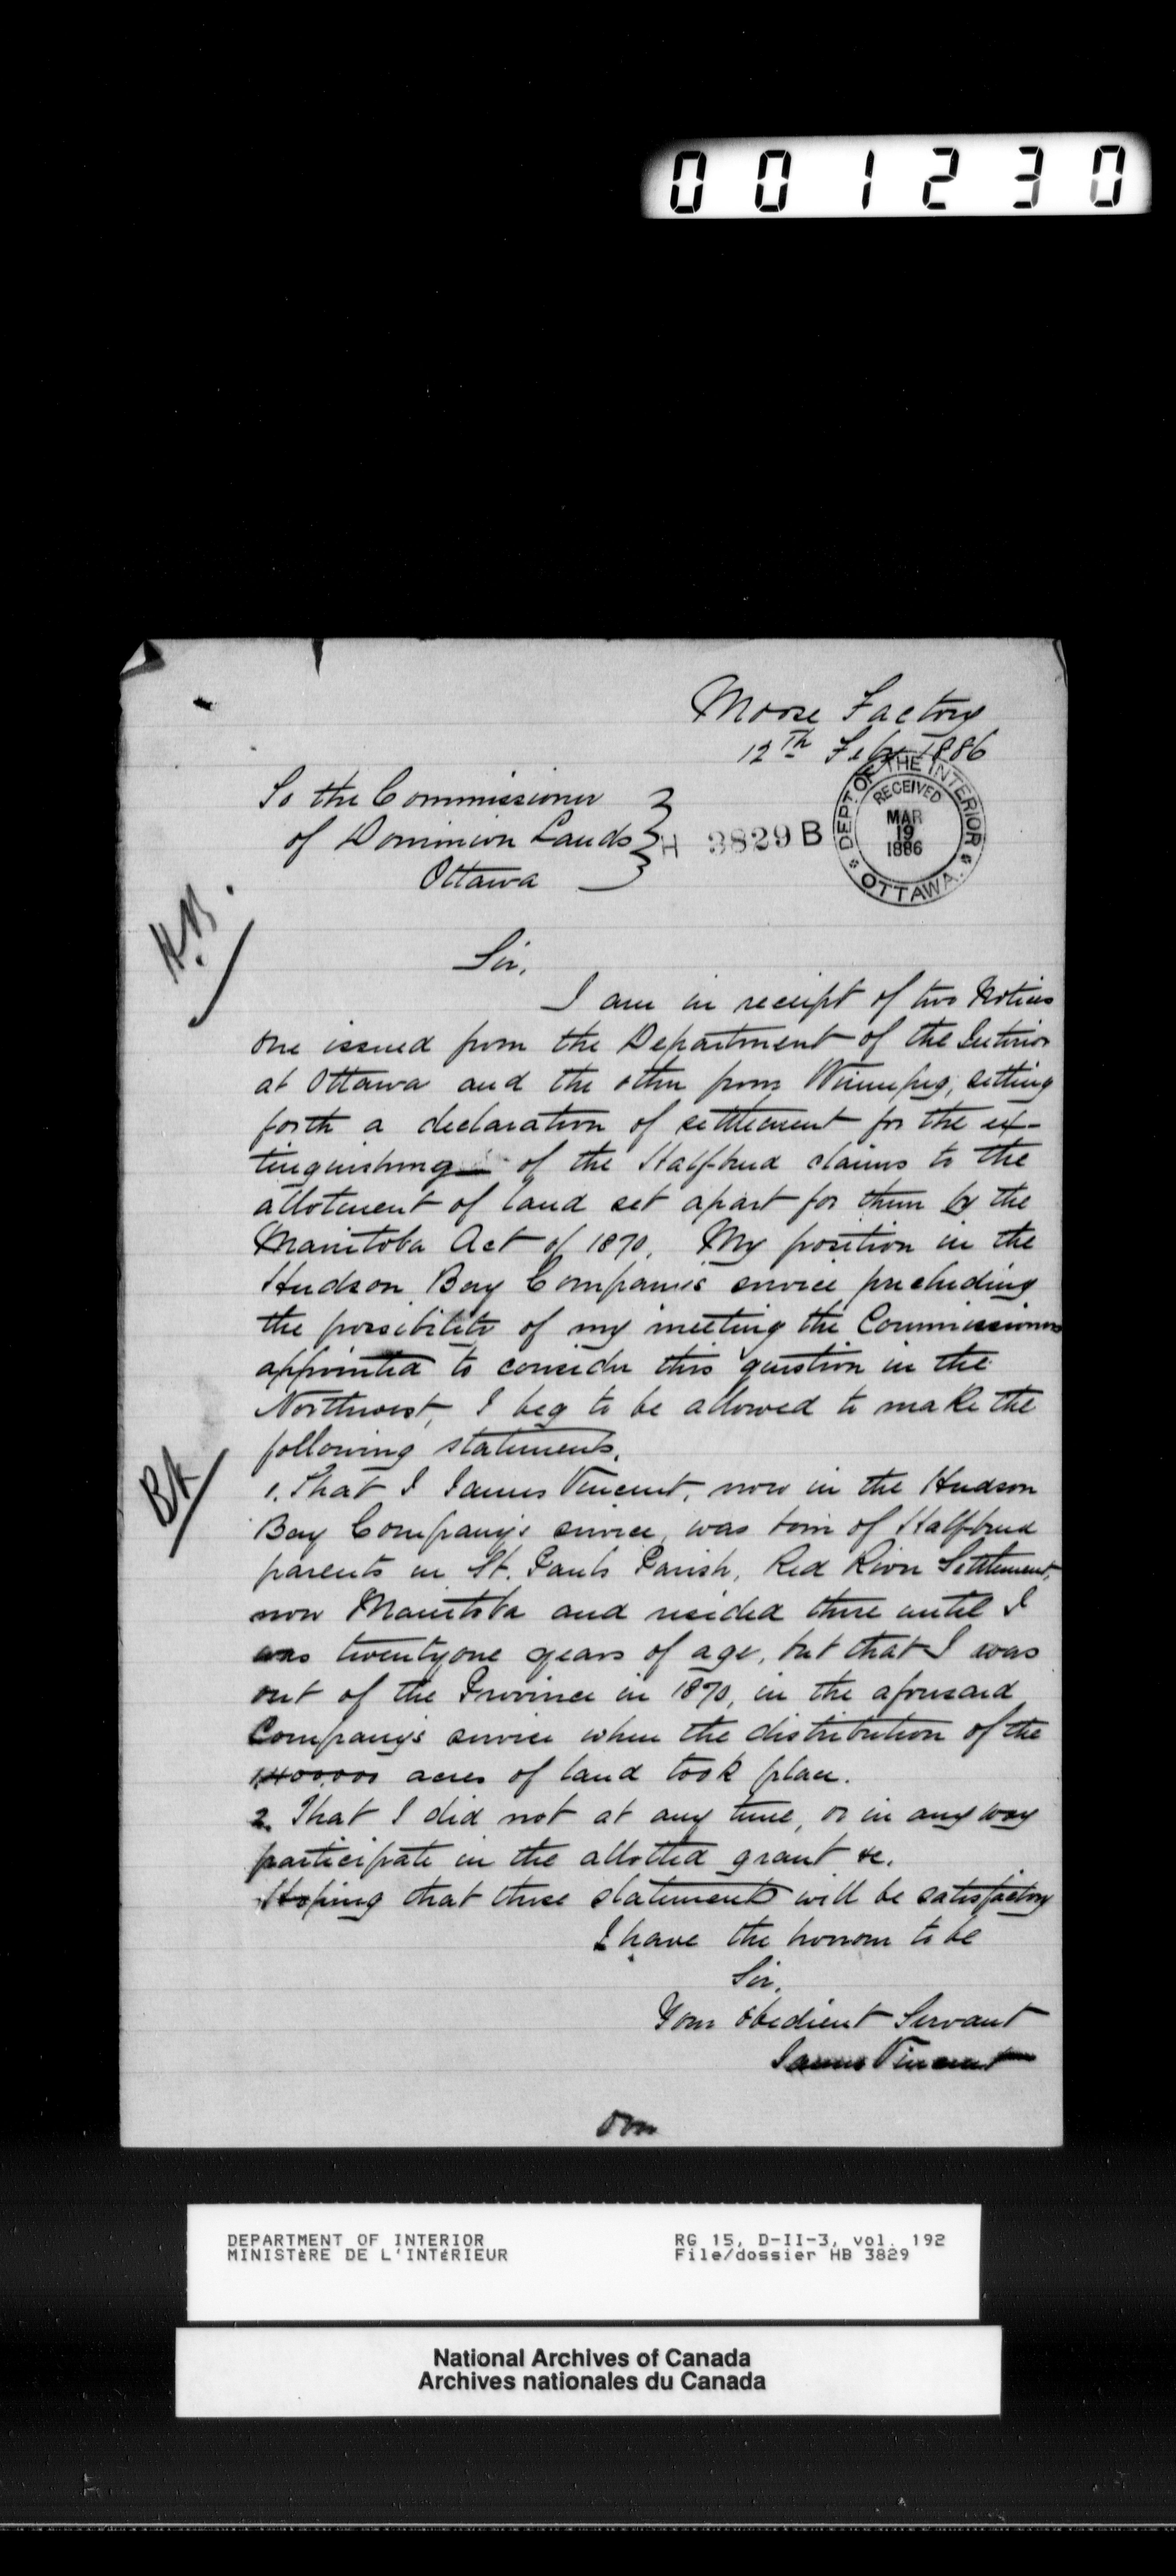 001230
Moose Factory
12th Feby 1886
To the Commissioner
of Dominion Lands
Ottawa
H 3829 B
DEPT. OF THE INTERIOR
RECEIVED
MAR
19
1886
OTTAWA.
H.B.
Sir,
I am in receipt of two Notices
one issued from the Department of the Interior
at Ottawa and the other from Winnipeg, setting
forth a declaration of settlement for the ex-
tinguishing of the Halfbreed claims to the
allotment of land set apart for them by the
Manitoba Act of 1870. My position in the
Hudson Bay Companies service precluding
the possibility of my meeting the Commissioners
appointed to consider this question in the
Northwest, I beg to be allowed to make the
following statements.
1. That I James Vincent, now in the Hudson
Bay Company's service, was born of Halfbreed
parents in St. Pauls Parish, Red River Settlement,
now Manitoba and resided there until I
was twentyone years of age, but that I was
out of the Province in 1870, in the aforesaid
Company's service when the distribution of the
1400000 acres of land took place.
2. That I did not at any time, or in any way
participate in the allotted grant &c.
Hoping that these statements will be satisfactory
I have the honour to be
Sir,
Your obedient Servant
James Vincent
DEPARTMENT OF INTERIOR
MINISTÈRE DE L'INTÉRIEUR
RG 15, D-II-3, vol. 192
File/dossier HB 3829
National Archives of Canada
Archives nationales du Canada